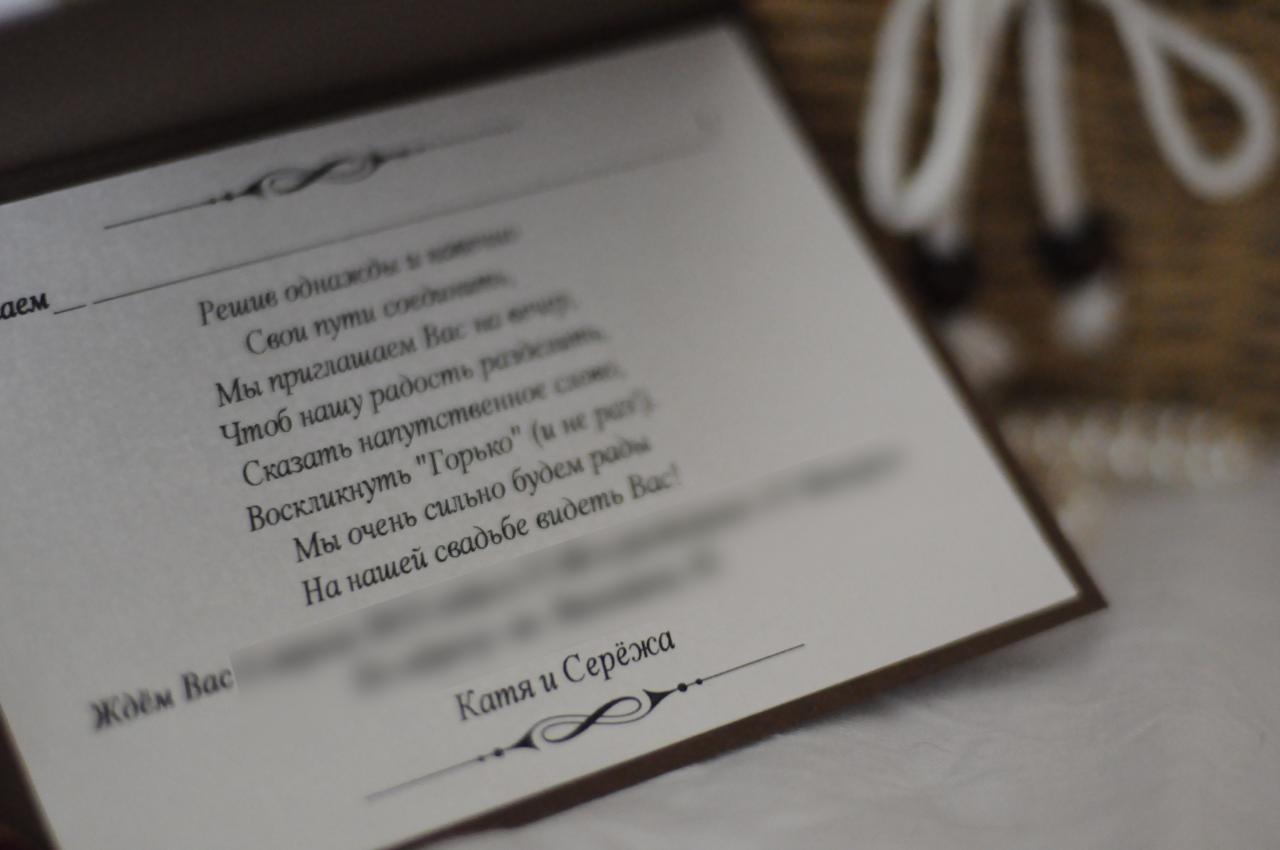 аем
Решив однажды и навечно
Свои пути соединить,
Мы приглашаем Вас на вечер,
Чтоб нашу радость разделить,
Сказать напутственное слово,
Воскликнуть "Горько" (и не раз!).
Мы очень сильно будем рады
На нашей свадьбе видеть Вас!
Ждём Вас
Катя и Серёжа